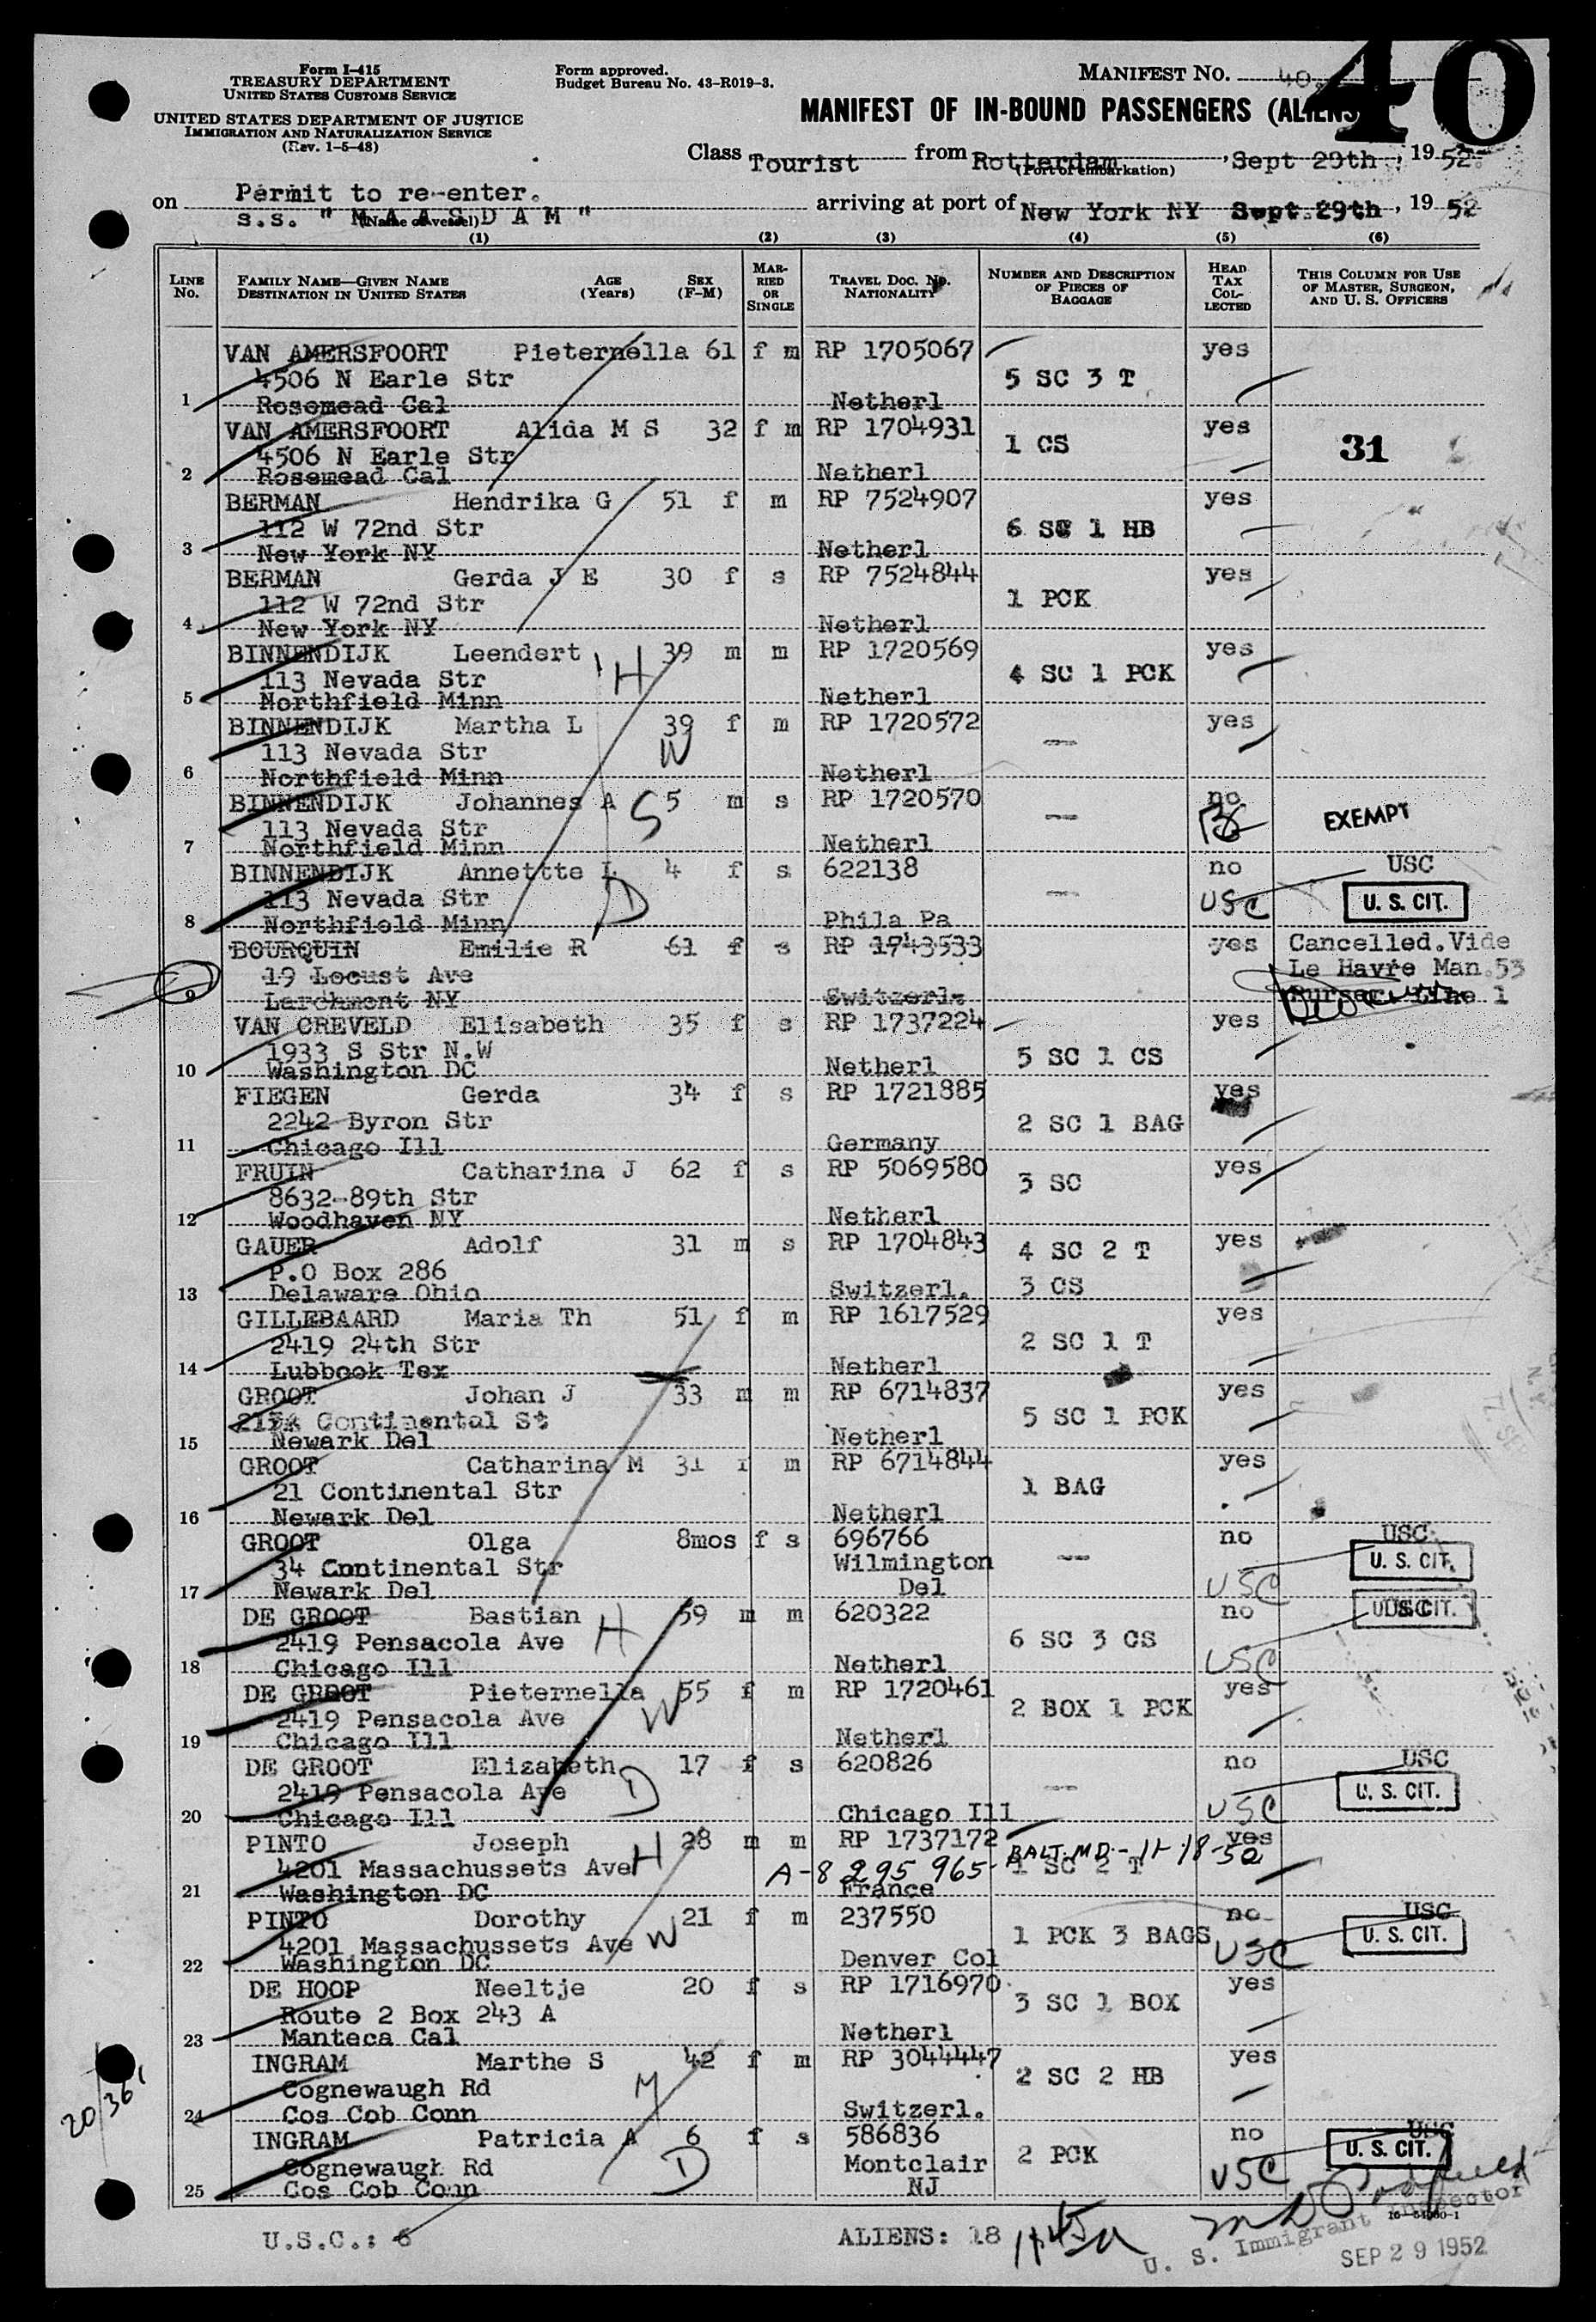 Form I-415
TREASURY DEPARTMENT
UNITED STATES CUSTOMS SERVICE
UNITED STATES DEPARTMENT OF JUSTICE
IMMIGRATION AND NATURALIZATION SERVICE
(Rev. 1-5-48)
Form approved.
Budget Bureau No. 43-R019-3.
MANIFEST NO. 40
40
MANIFEST OF IN-BOUND PASSENGERS (ALIENS
Class Tourist from Rotterdam, Sept 29th, 1952.
(Port of embarkation)
Permit to re-enter.
on s.s. " M A A S D A M " arriving at port of New York NY Sept.29th, 1952
(Name of vessel)
(1) (2) (3) (4) (5) (6)
LINE No.
FAMILY NAME—GIVEN NAME DESTINATION IN UNITED STATES
AGE (Years)
SEX (F-M)
MARRIED OR SINGLE
TRAVEL DOC. NO. NATIONALITY
NUMBER AND DESCRIPTION OF PIECES OF BAGGAGE
HEAD TAX COLLECTED
THIS COLUMN FOR USE OF MASTER, SURGEON, AND U. S. OFFICERS
VAN AMERSFOORT Pieternella 61 f m RP 1705067 yes
4506 N Earle Str 5 SC 3 T
1 Rosemead Cal Netherl
VAN AMERSFOORT Alida M S 32 f m RP 1704931 yes
4506 N Earle Str 1 CS 31
2 Rosemead Cal Netherl
BERMAN Hendrika G 51 f m RP 7524907 yes
112 W 72nd Str 6 SC 1 HB
3 New York NY Netherl
BERMAN Gerda J E 30 f s RP 7524844 yes
112 W 72nd Str 1 PCK
4 New York NY Netherl
BINNENDIJK Leendert H 39 m m RP 1720569 yes
113 Nevada Str 4 SC 1 PCK
5 Northfield Minn Netherl
BINNENDIJK Martha L 39 f m RP 1720572 yes
113 Nevada Str W —
6 Northfield Minn Netherl
BINNENDIJK Johannes A S 5 m s RP 1720570 no
113 Nevada Str — EXEMPT
7 Northfield Minn Netherl
BINNENDIJK Annettte L 4 f s 622138 no USC
113 Nevada Str D — USC U. S. CIT.
8 Northfield Minn Phila Pa
BOURQUIN Emilie R 61 f s RP 1743533 yes Cancelled.Vide
19 Locust Ave Le Havre Man.53
9 Larchmont NY Switzerl. Purser Line 1
VAN CREVELD Elisabeth 35 f s RP 1737224 yes
1933 S Str N.W 5 SC 1 CS
10 Washington DC Netherl
FIEGEN Gerda 34 f s RP 1721885 yes
2242 Byron Str 2 SC 1 BAG
11 Chicago Ill Germany
FRUIN Catharina J 62 f s RP 5069580 yes
8632-89th Str 3 SC
12 Woodhaven NY Netherl
GAUER Adolf 31 m s RP 1704843 4 SC 2 T yes
P.O Box 286
13 Delaware Ohio Switzerl. 3 CS
GILLEBAARD Maria Th 51 f m RP 1617529 yes
2419 24th Str 2 SC 1 T
14 Lubbock Tex Netherl
GROOT Johan J 33 m m RP 6714837 yes
Continental St 5 SC 1 PCK
15 Newark Del Netherl
GROOT Catharina M 31 f m RP 6714844 yes
21 Continental Str 1 BAG
16 Newark Del Netherl
GROOT Olga 8mos f s 696766 no USC
34 Continental Str Wilmington — U. S. CIT.
17 Newark Del Del USC
DE GROOT Bastian H 59 m m 620322 no USC U. S. CIT.
2419 Pensacola Ave 6 SC 3 CS
18 Chicago Ill Netherl USC
DE GROOT Pieternella 55 f m RP 1720461 yes
2419 Pensacola Ave W 2 BOX 1 PCK
19 Chicago Ill Netherl
DE GROOT Elizabeth 17 f s 620826 no USC
2419 Pensacola Ave D — USC U. S. CIT.
20 Chicago Ill Chicago Ill
PINTO Joseph H 28 m m RP 1737172 yes
4201 Massachussets Ave A-8 295 965- BALT. MD - 11-18-52 1 SC 2 T
21 Washington DC France
PINTO Dorothy 21 f m 237550 no USC
4201 Massachussets Ave W 1 PCK 3 BAGS USC U. S. CIT.
22 Washington DC Denver Col
DE HOOP Neeltje 20 f s RP 1716970 yes
Route 2 Box 243 A 3 SC 1 BOX
23 Manteca Cal Netherl
INGRAM Marthe S 42 f m RP 3044447 yes
Cognewaugh Rd M 2 SC 2 HB
24 Cos Cob Conn Switzerl.
INGRAM Patricia A 6 f s 586836 no USC
Cognewaugh Rd D Montclair 2 PCK USC U. S. CIT.
25 Cos Cob Conn NJ
20/36
U.S.C.: 6 ALIENS: 18
U. S. Immigrant Inspector
SEP 29 1952